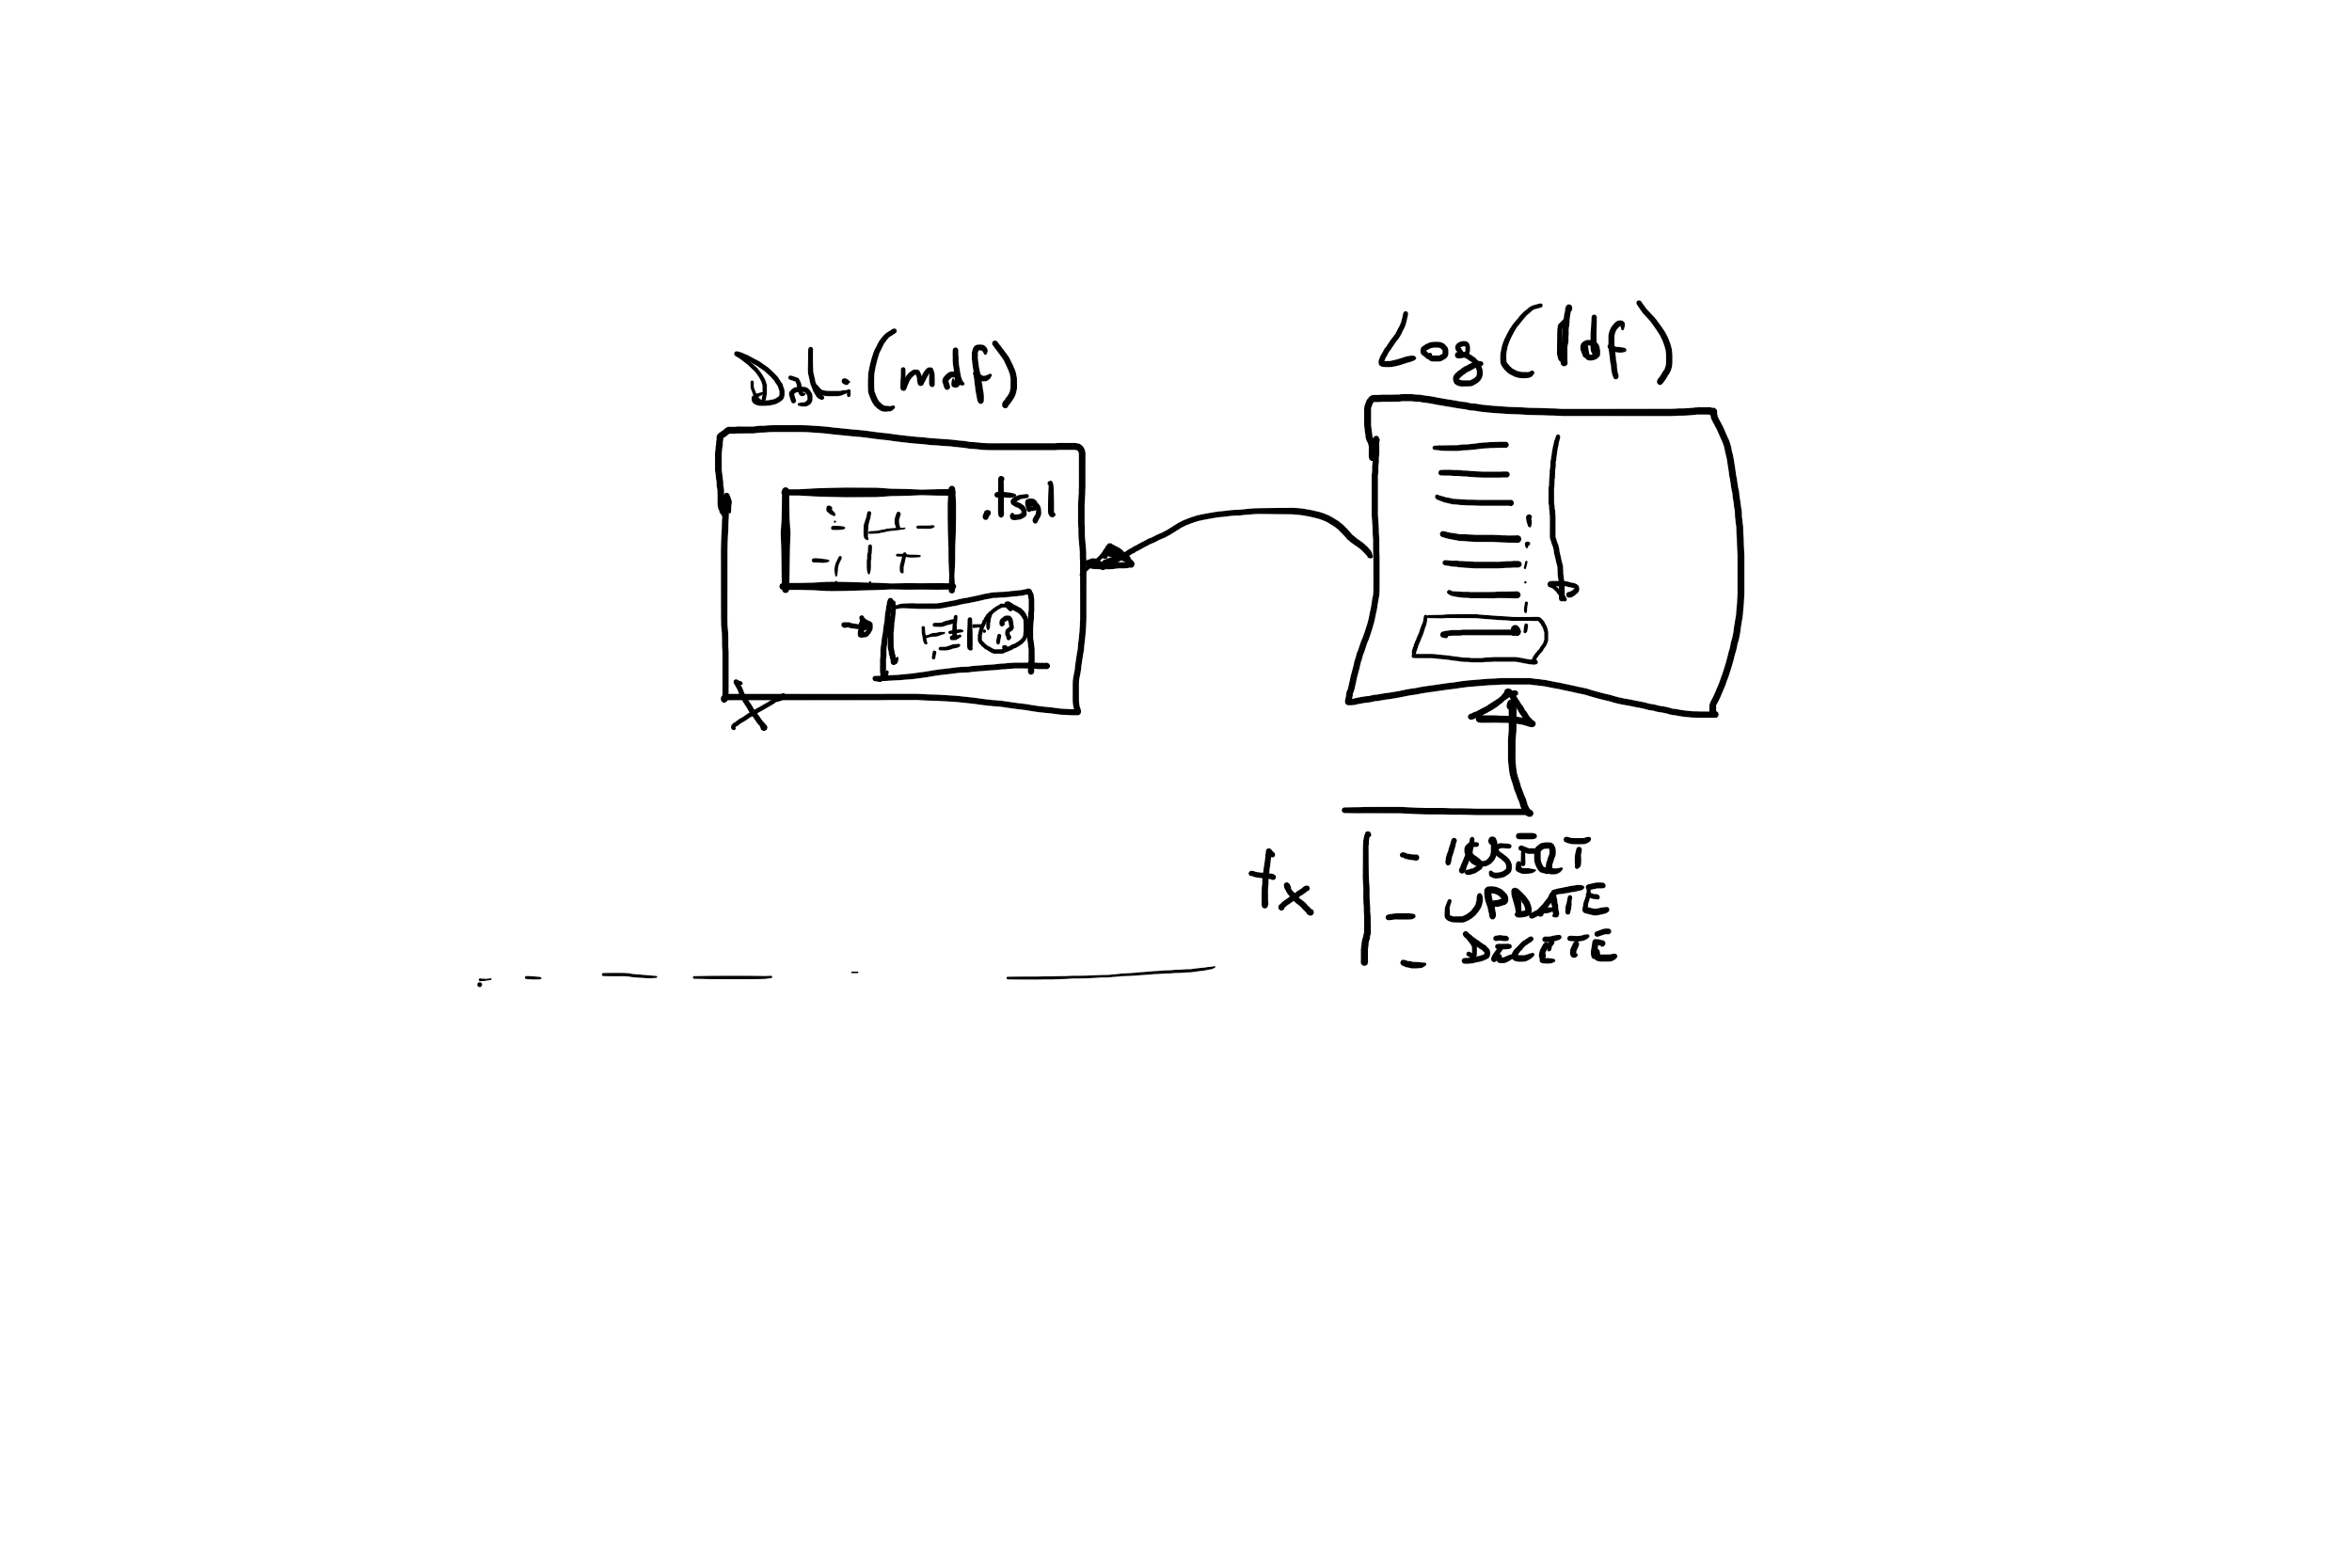 Data (mdf)
Log (ldf)
tx
- INSERT
- UPDATE
- DELETE